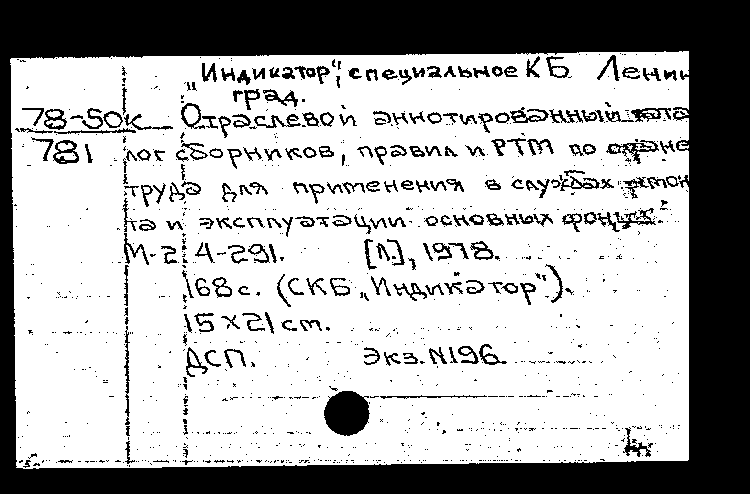 „Индикатор", специальное КБ Ленин
град.
78-50к Отраслевой аннотированный ката
781 лог сборников, правил и РТМ по охране
труда для применения в службах ремон
та и эксплуатации основных фондов.
И-2 4-291. [Л.], 1978.
168 с. (СКБ „Индикатор").
15 х 21 см.
ДСП. Экз. N196.